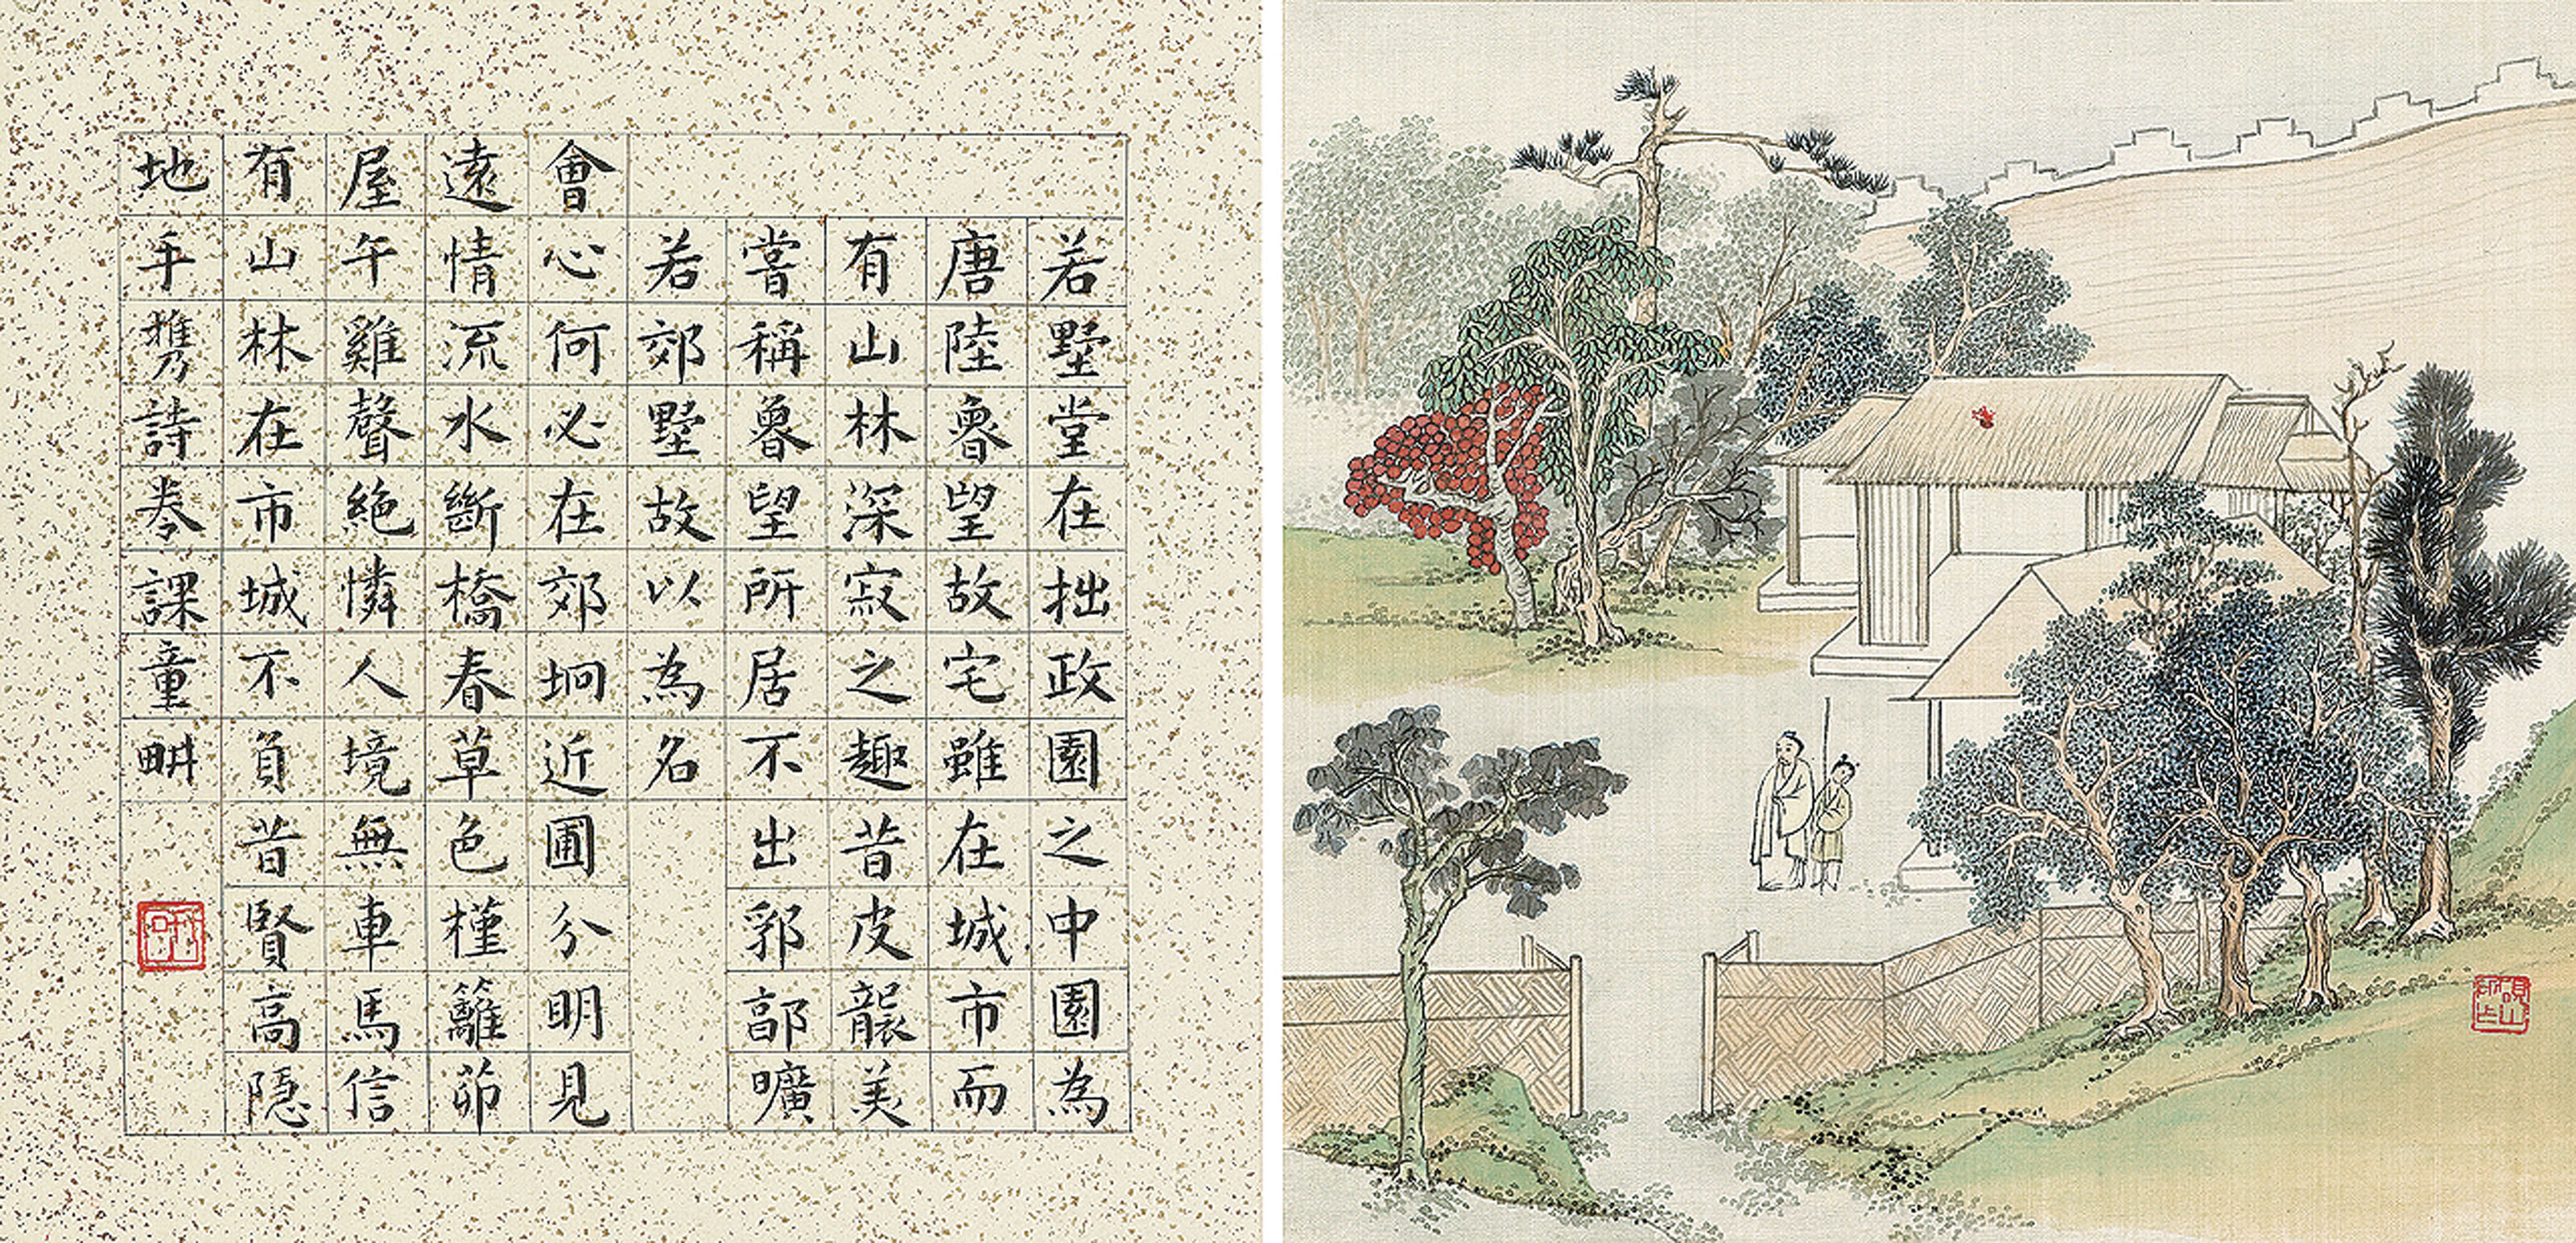 若墅堂在拙政園之中園為
唐陸魯望故宅雖在城市而
有山林深寂之趣昔皮襲美
嘗稱魯望所居不出郛郭曠
若郊墅故以為名
會心何必在郊坰近圃分明見
遠情流水斷橋春草色槿籬茆
屋午雞聲絕憐人境無車馬信
有山林在市城不負昔賢高隱
地手携詩卷課童畊